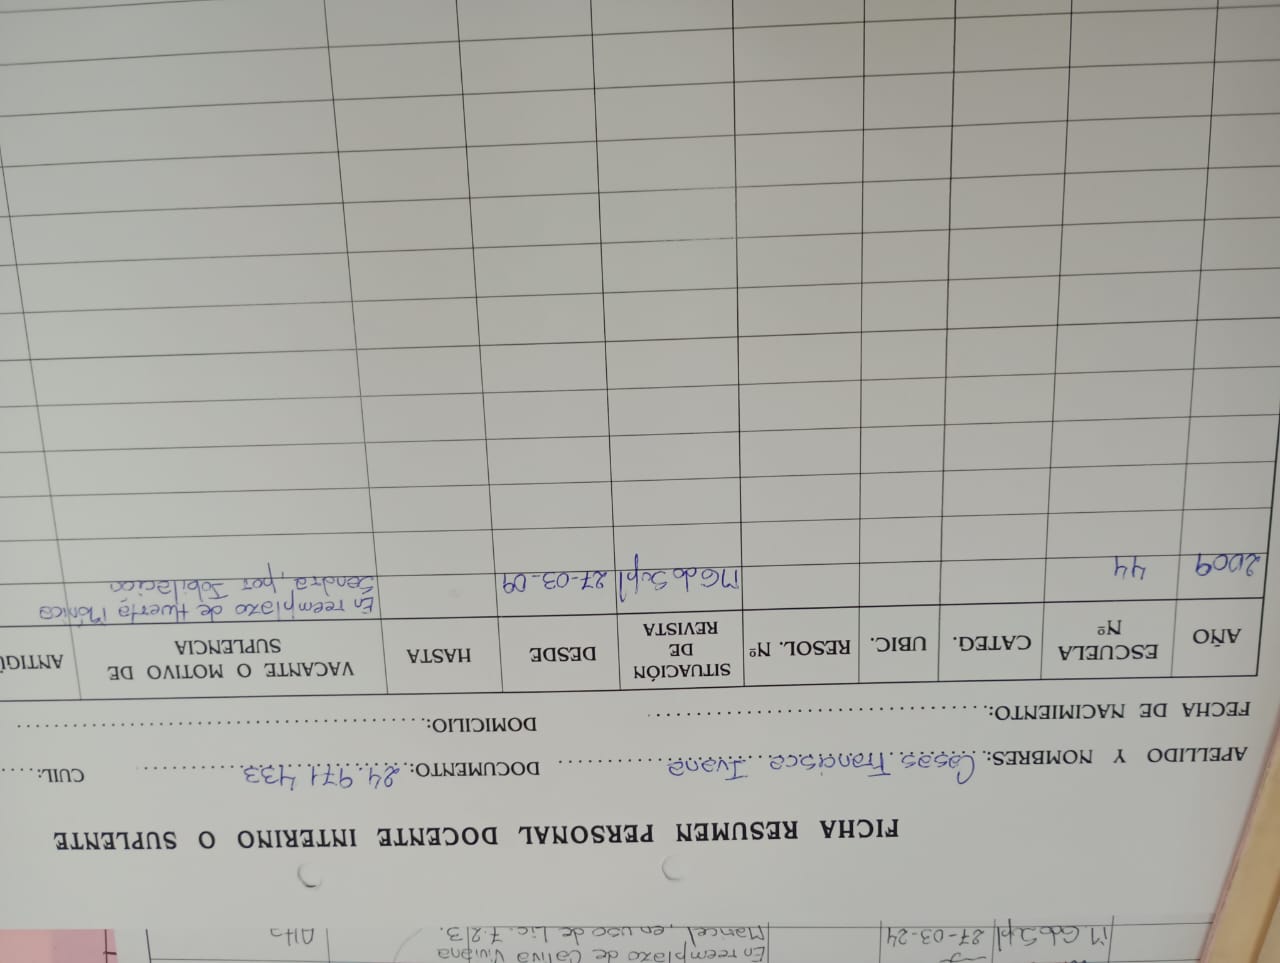 En reemplazo de Cativa Viviana
M. Gdo Supl 27-03-24 Maricel, en uso de Lic. 7.2/3. Alta
FICHA RESUMEN PERSONAL DOCENTE INTERINO O SUPLENTE
APELLIDO Y NOMBRES: Casas Francisca Ivana DOCUMENTO: 24.971.433 CUIL:
FECHA DE NACIMIENTO: DOMICILIO:
AÑO ESCUELA Nº CATEG. UBIC. RESOL. Nº SITUACIÓN DE REVISTA DESDE HASTA VACANTE O MOTIVO DE SUPLENCIA
En reemplazo de Huerta Mónica
2009 44 M Gdo Supl 27-03-09 Sandra, por Jobilación